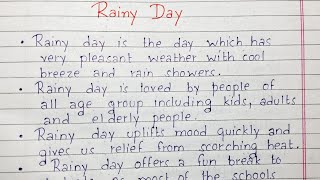 Rainy Day
• Rainy day is the day which has
very pleasant weather with cool
breeze and rain showers.
• Rainy day is loved by people of
all age group including kids, adults
and elderly people.
• Rainy day uplifts mood quickly and
gives us relief from scorching heat.
• Rainy day offers a fun break to
as most of the schools